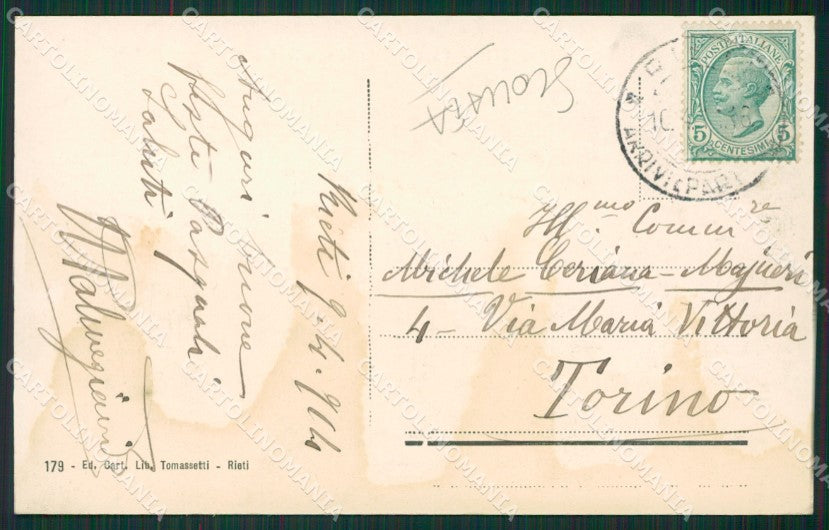 Rieti 9.4.914
Auguri buone
feste Pasquali
Saluti
Ill.mo Comm.re
Michele Ceriana-Mayneri
4 - Via Maria Vittoria
Torino
POSTE ITALIANE
5 5
CENTESIMI
ARRIVI E PART
179 - Ed. Cart. Lib. Tomassetti - Rieti
CARTOLINOMANIA